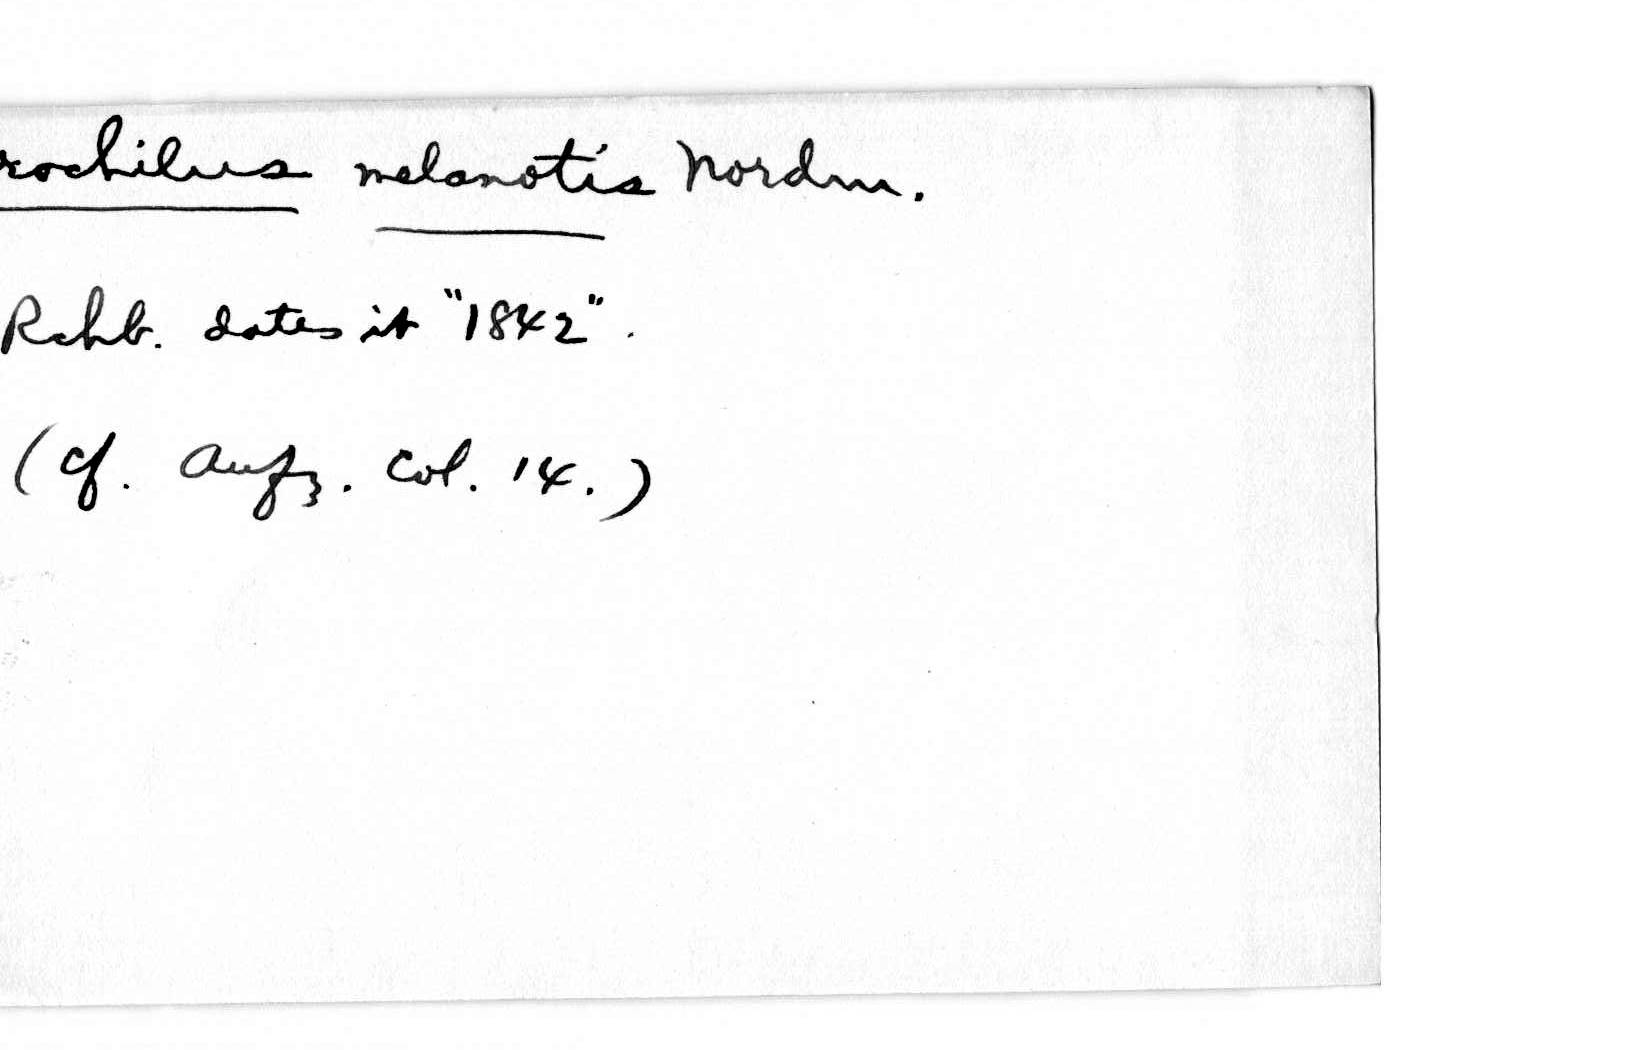 rochilus melanotis Nordm.
Rchb. dates it "1842".
(Cf. Aufz. Col. 14.)